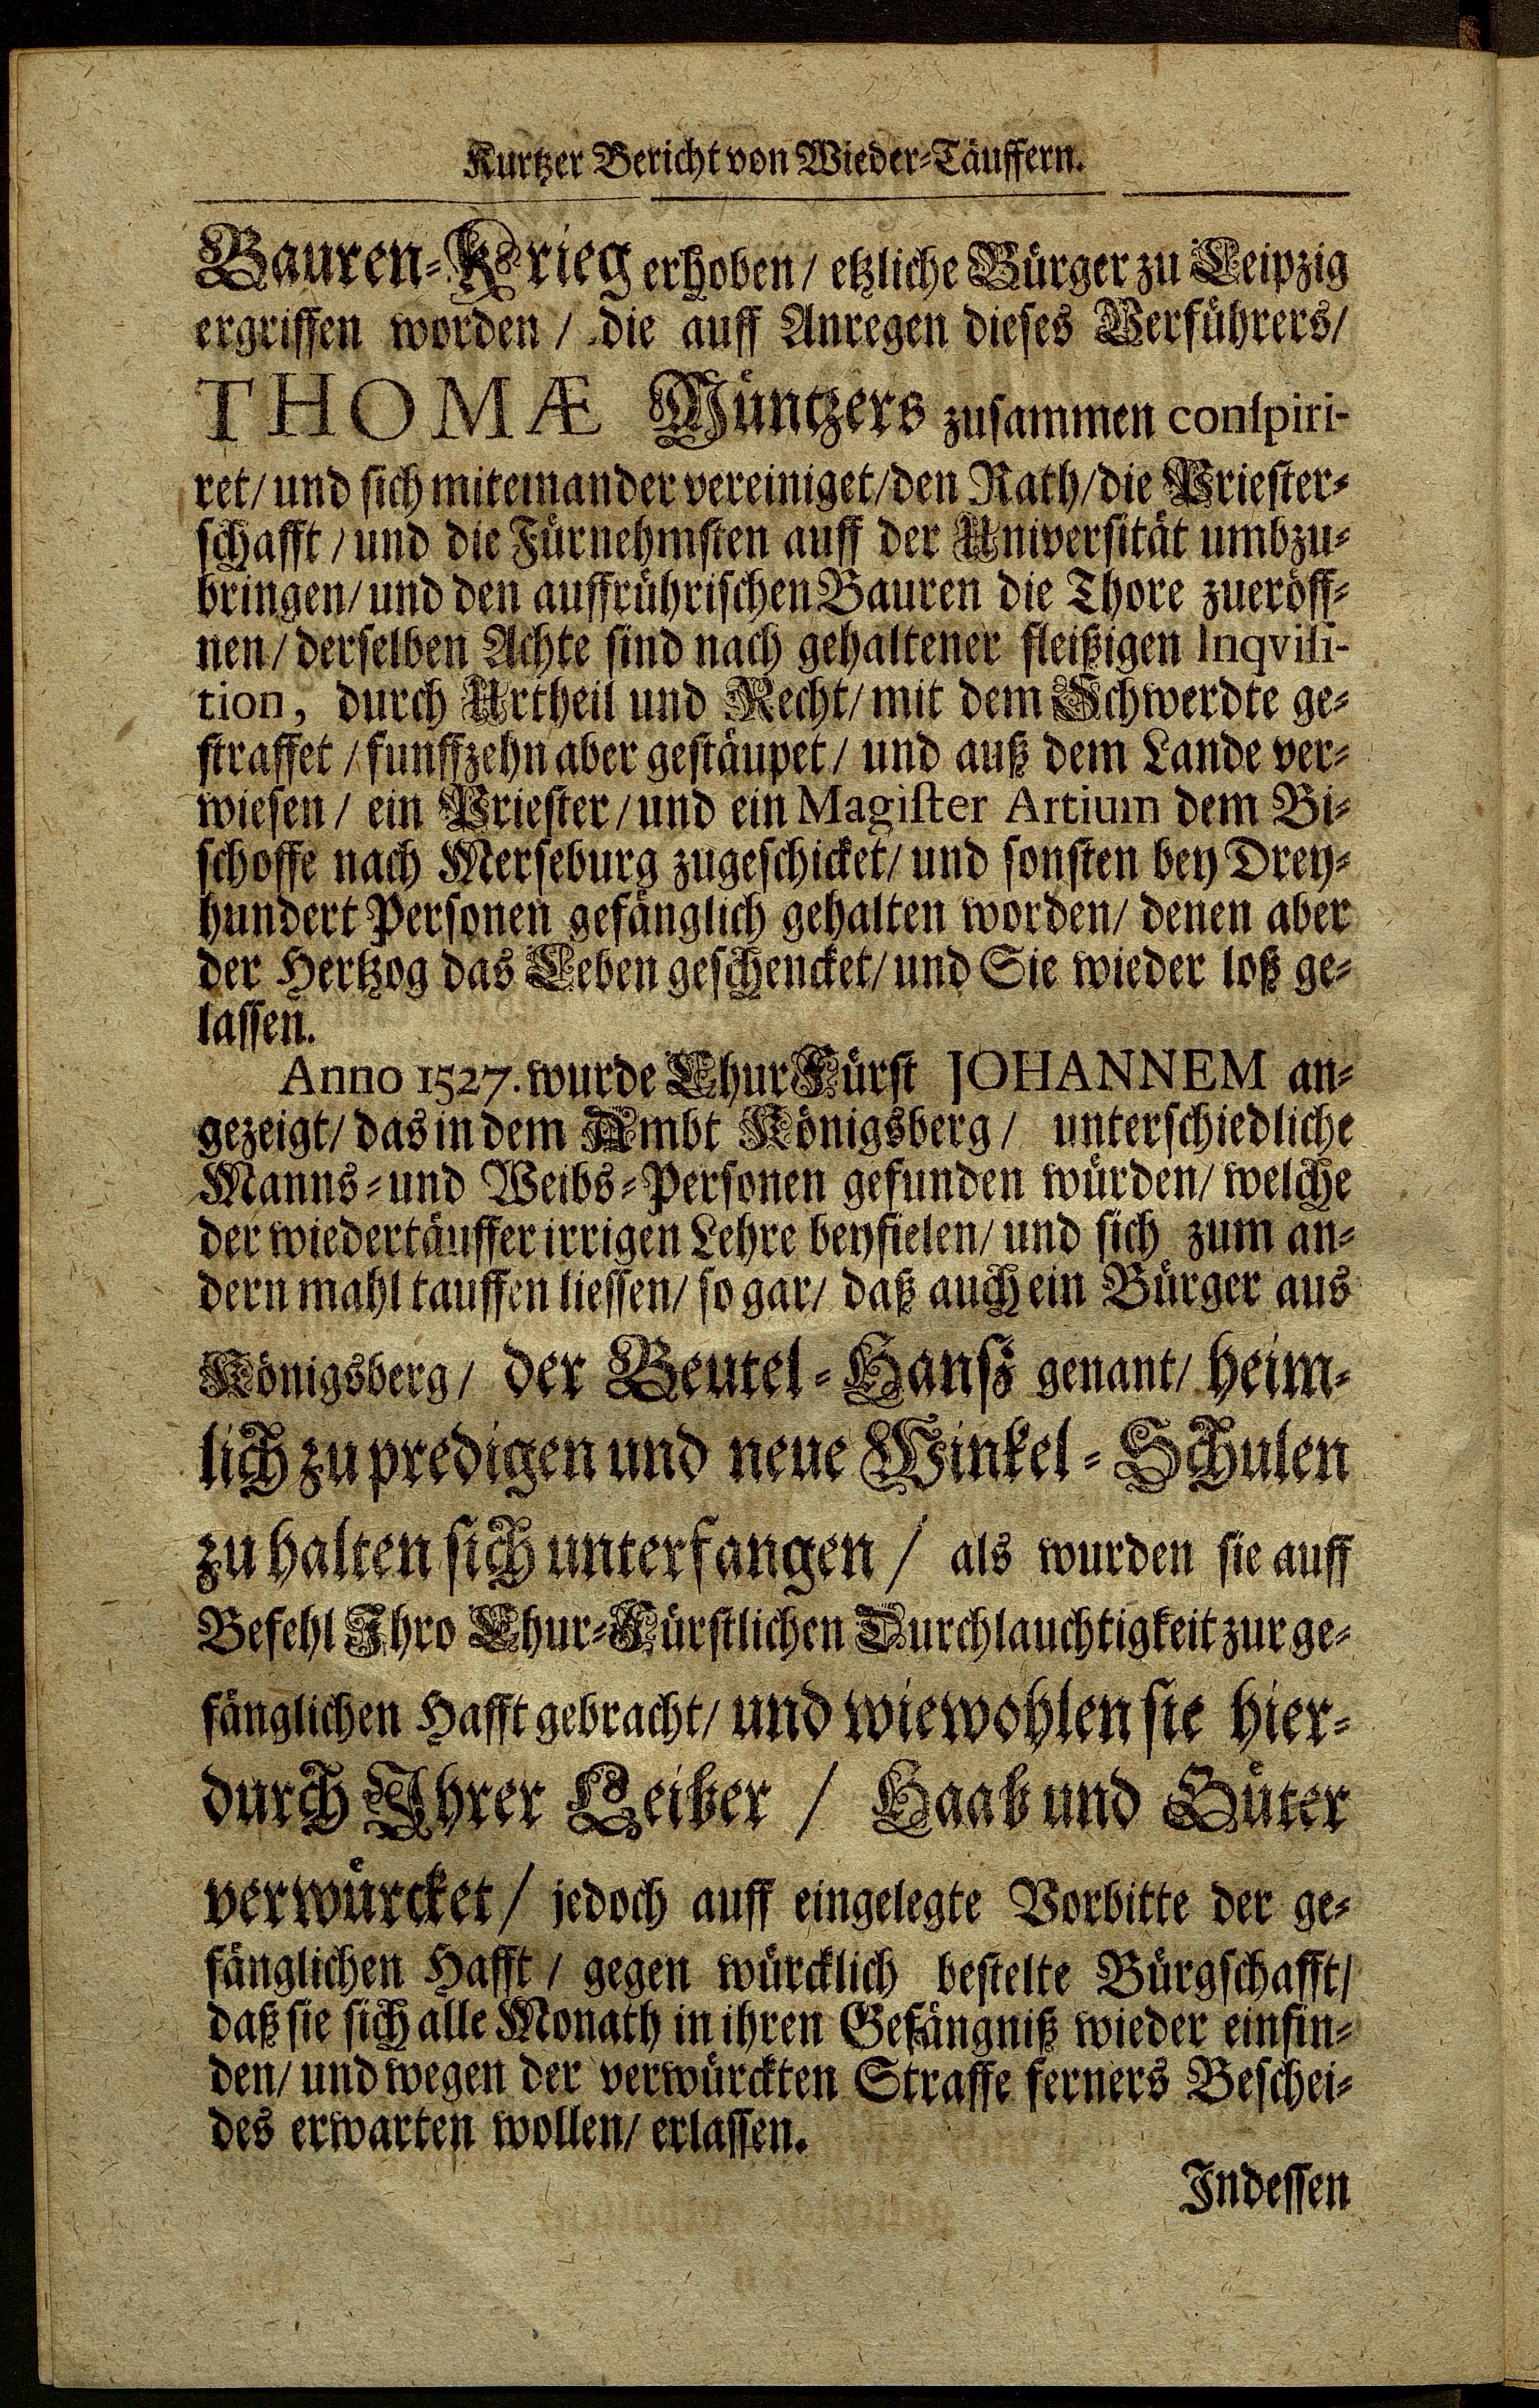 Kurtzer Bericht von Wieder-Täuffern.
Bauren-Krieg erhoben/ etzliche Bürger zu Leipzig
ergriffen worden / die auff Anregen dieses Verführers/
THOMÆ Müntzers zusammen conspiri-
ret/ und sich miteinander vereiniget/den Rath/die Priester-
schafft / und die Fürnehmsten auff der Universität umbzu-
bringen/ und den auffrührischen Bauren die Thore zueröff-
nen/ derselben Achte sind nach gehaltener fleißigen Inqvisi-
tion, durch Urtheil und Recht/ mit dem Schwerdte ge-
straffet / funffzehn aber gestäupet/ und auß dem Lande ver-
wiesen/ ein Priester/ und ein Magister Artium dem Bi-
schoffe nach Merseburg zugeschicket/ und sonsten bey Drey-
hundert Personen gefänglich gehalten worden/ denen aber
der Hertzog das Leben geschencket/ und Sie wieder loß ge-
lassen.
Anno 1527. wurde ChurFürst JOHANNEM an-
gezeigt/ das in dem Ambt Königsberg/ unterschiedliche
Manns- und Weibs-Personen gefunden würden/ welche
der wiedertäuffer irrigen Lehre beyfielen/ und sich zum an-
dern mahl tauffen liessen/ so gar/ daß auch ein Bürger aus
Königsberg/ der Beutel-Hanß genant/ heim-
lich zu predigen und neue Winkel-Schulen
zu halten sich unterfangen / als wurden sie auff
Befehl Ihro Chur-Fürstlichen Durchlauchtigkeit zur ge-
fänglichen Hafft gebracht/ und wiewohlen sie hier-
durch Ihrer Leiber / Haab und Güter
verwürcket/ jedoch auff eingelegte Vorbitte der ge-
fänglichen Hafft / gegen würcklich bestelte Bürgschafft/
daß sie sich alle Monath in ihren Gefängniß wieder einfin-
den/ und wegen der verwürckten Straffe ferners Beschei-
des erwarten wollen/ erlassen.
Indessen